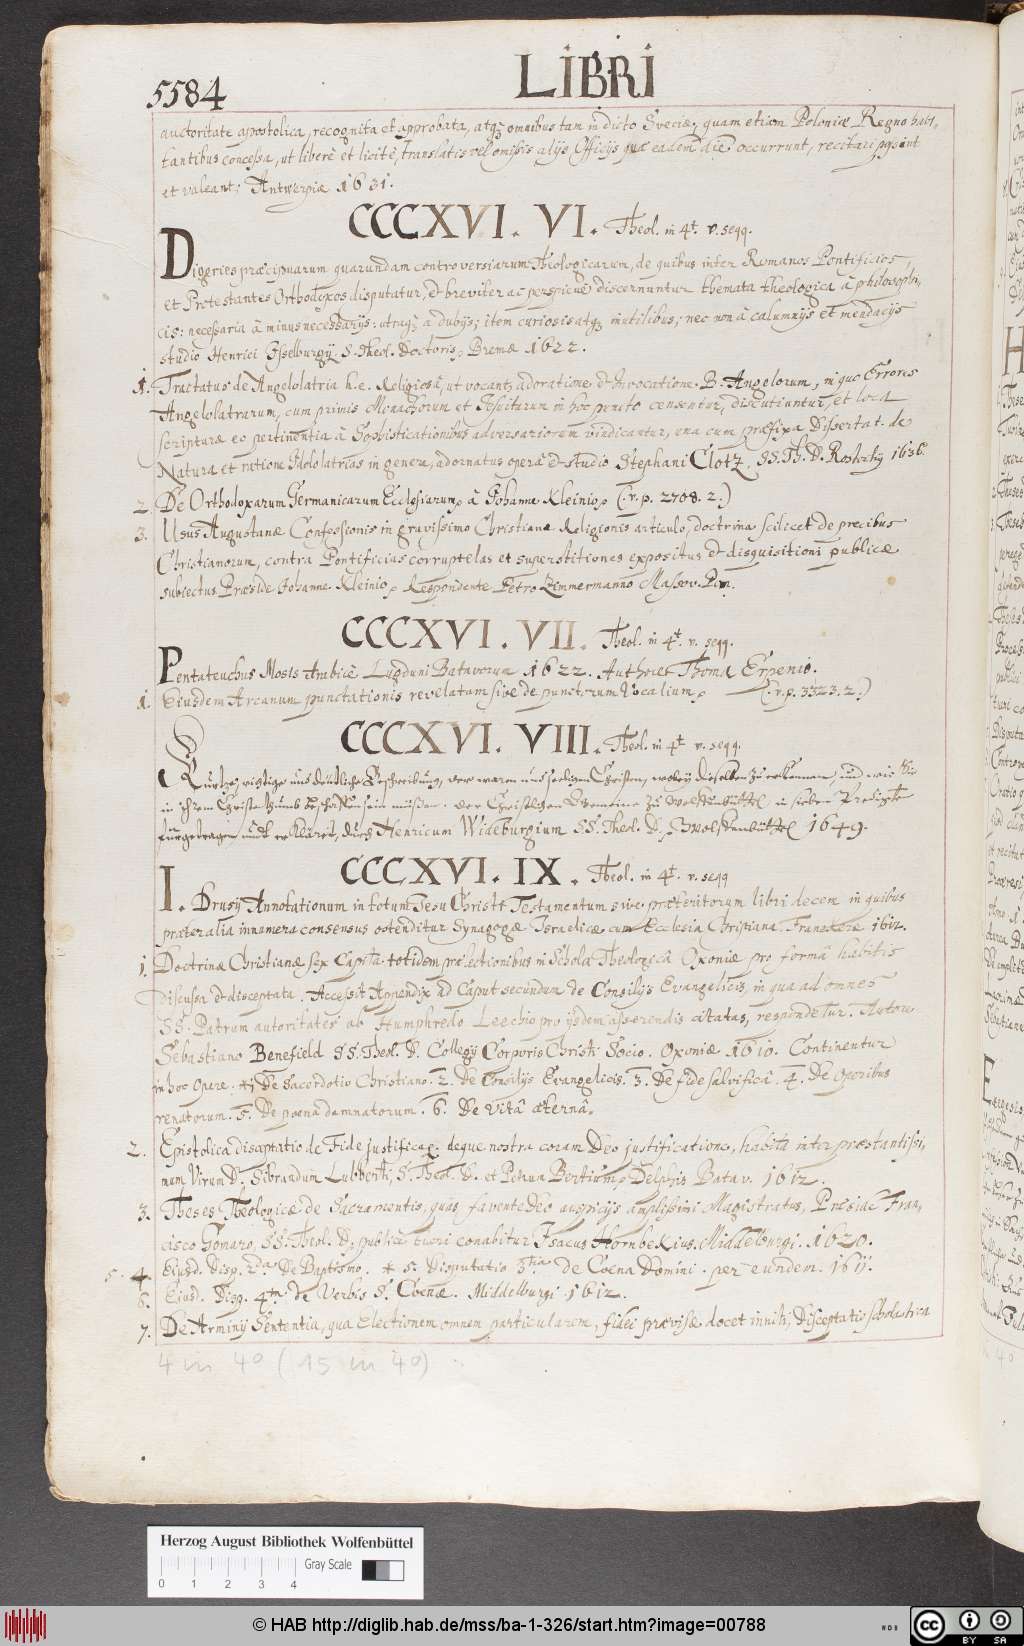 5584
LIBRI
auctoritate apostolica, recognita et approbata, atq; omnibus tam in dicto Sveciæ, quam etiam Poloniæ Regno habi,
tantibus concessa, ut liberè et licitè, translatis vel omissis alijs Officijs quæ eadem die occurrunt, recitari possint
et valeant; Antwerpiæ 1631.
CCCXVI. VI. Theol. in 4t. v. seqq.
Digeries præcipuarum quarundam controversiarum Theologicarum, de quibus inter Romanos Pontificios,
et Protestantes Orthodoxos disputatur, & breviter ac perspicuè discernuntur themata theologica à philosophi,
cis: necessaria à minus necessarijs: utraq; à dubijs; item curiosis atq; inutilibus; nec non à calumnijs et mendacijs
studio Henrici Isselburgij S. Theol. Doctoris; Bremæ 1622.
1. Tractatus de Angelolatria h. e. Religiosâ, ut vocant, adoratione & Invocatione B. Angelorum, in quo Errores
Angelolatrarum, cum primis Monachorum et Jesuitarum in hoc puncto censentur, discutiuntur, et loca
scripturæ eo pertinentia à Sophisticationibus adversariorum vindicantur, una cum præfixa Dissertat. de
Natura et ratione Idololatrias in genere, adornatus operâ & studio Stephani Clotz. SS. Th. D. Rostochij 1636.
2. De Orthodoxarum Germanicarum Ecclesiarum, à Johanne Kleinio, (: v. p. 2708. 2.)
3. Usus Augustanæ Confessionis in gravissimo Christianæ Religionis articulo, doctrina scilicet de precibus
Christianorum, contra Pontificias corruptelas et superstitiones expositus & disquisitioni publicæ
subiectus Præside Johanne Kleinio, Respondente Petro Zimmermanno Massov. Pom.
CCCXVI. VII. Theol. in 4t. v. seqq.
Pentateuchus Mosis Arabicè Lugduni Batavorum 1622. Authore Thoma Erpenio.
1. Eiusdem Arcanum punctationis revelatum sive de punctorum Vocalium, (: v. p. 3323. 2.)
CCCXVI. VIII. Theol. in 4t v. seqq.
Kurtze, richtige und deutliche Beschreibung, der waren und seeligen Christen, wobey dieselben zu erkennen, und wie Sie
in ihrem Christenthumb beschaffen sein müssen. der Christlichen Gemeine zu Wolffenbüttel in sieben Predigten
fürgetragen, undt erkläret, durch Henricum Wideburgium SS. Theol. D. Wolffenbüttel 1649.
CCCXVI. IX. Theol. in 4t. v. seqq
I. Drusij Annotationum in totum Jesu Christi Testamentum sive præteritorum libri decem in quibus
præter alia innumera consensus ostenditur Synagogæ Israelicæ cum Ecclesia Christiana. Franekeræ 1612.
1. Doctrinæ Christianæ sex Capita totidem prælectionibus in Schola Theologicâ Oxoniæ pro formâ habitis
discussa & disceptata. Accessit Appendix ad Caput secundum de Consilijs Evangelicis, in qua ad omnes
SS. Patrum autoritates ab Humphredo Leechio pro ijsdem asserendis citatas, respondetur. Autore
Sebastiano Benefield SS. Theol. D. Collegij Corporis Christi Socio. Oxoniæ 1610. Continentur
in hoc Opere. 1. De Sacerdotio Christiano. 2. De Consilijs Evangelicis. 3. De fide salvificâ. 4. De Operibus
renatorum. 5. De poena damnatorum. 6. De vitâ æternâ.
2. Epistolica disceptatio de Fide justificae. deque nostra coram Deo justificatione, habita inter præstantissi,
mum Virum D. Sibrandum Lubberti, S. Theol. D. et Petrum Bertium. Delphis Batav. 1612.
3. Theses Theologicæ de Sacramentis, quas favente Deo auspicijs amplissimi Magistratus, Præside Fran,
cisco Gomaro, SS. Theol. D. publicè tueri conabitur Isacus Hornbekius. Middelburgi. 1620.
5. 4. Eiusd. Disp. 2da De Baptismo. + 5. Disputatio 3tia de Coena Domini. per eundem. 1611.
6. Eiusd. Disp. 4ta de Verbis S. Coenæ. Middelburgi 1612.
7. De Arminij Sententia, qua Electionem omnem particularem, fidei prævisæ docet inniti, Disceptatio scholastica
4 in 4o (15 in 4o)
Herzog August Bibliothek Wolfenbüttel
Gray Scale
0 1 2 3 4
© HAB http://diglib.hab.de/mss/ba-1-326/start.htm?image=00788
WDB
cc BY SA